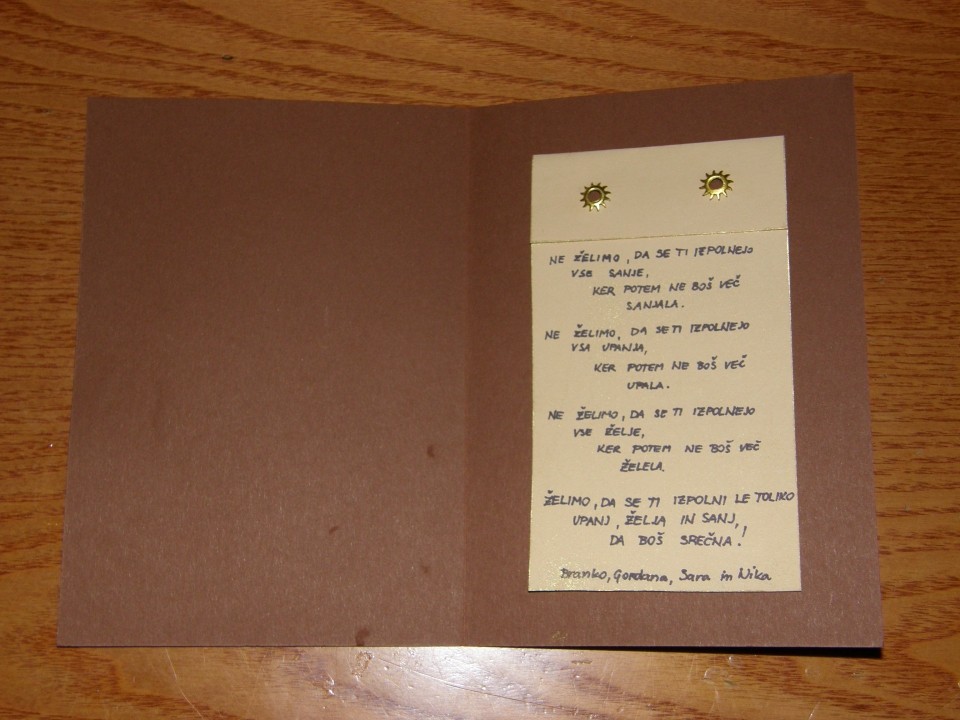 NE ŽELIMO, DA SE TI IZPOLNEJO
VSE SANJE,
KER POTEM NE BOŠ VEČ
SANJALA.
NE ŽELIMO, DA SE TI IZPOLNEJO
VSA UPANJA,
KER POTEM NE BOŠ VEČ
UPALA.
NE ŽELIMO, DA SE TI IZPOLNEJO
VSE ŽELJE,
KER POTEM NE BOŠ VEČ
ŽELELA.
ŽELIMO, DA SE TI IZPOLNI LE TOLIKO
UPANJ, ŽELJA IN SANJ,
DA BOŠ SREČNA!
Branko, Gordana, Sara in Nika